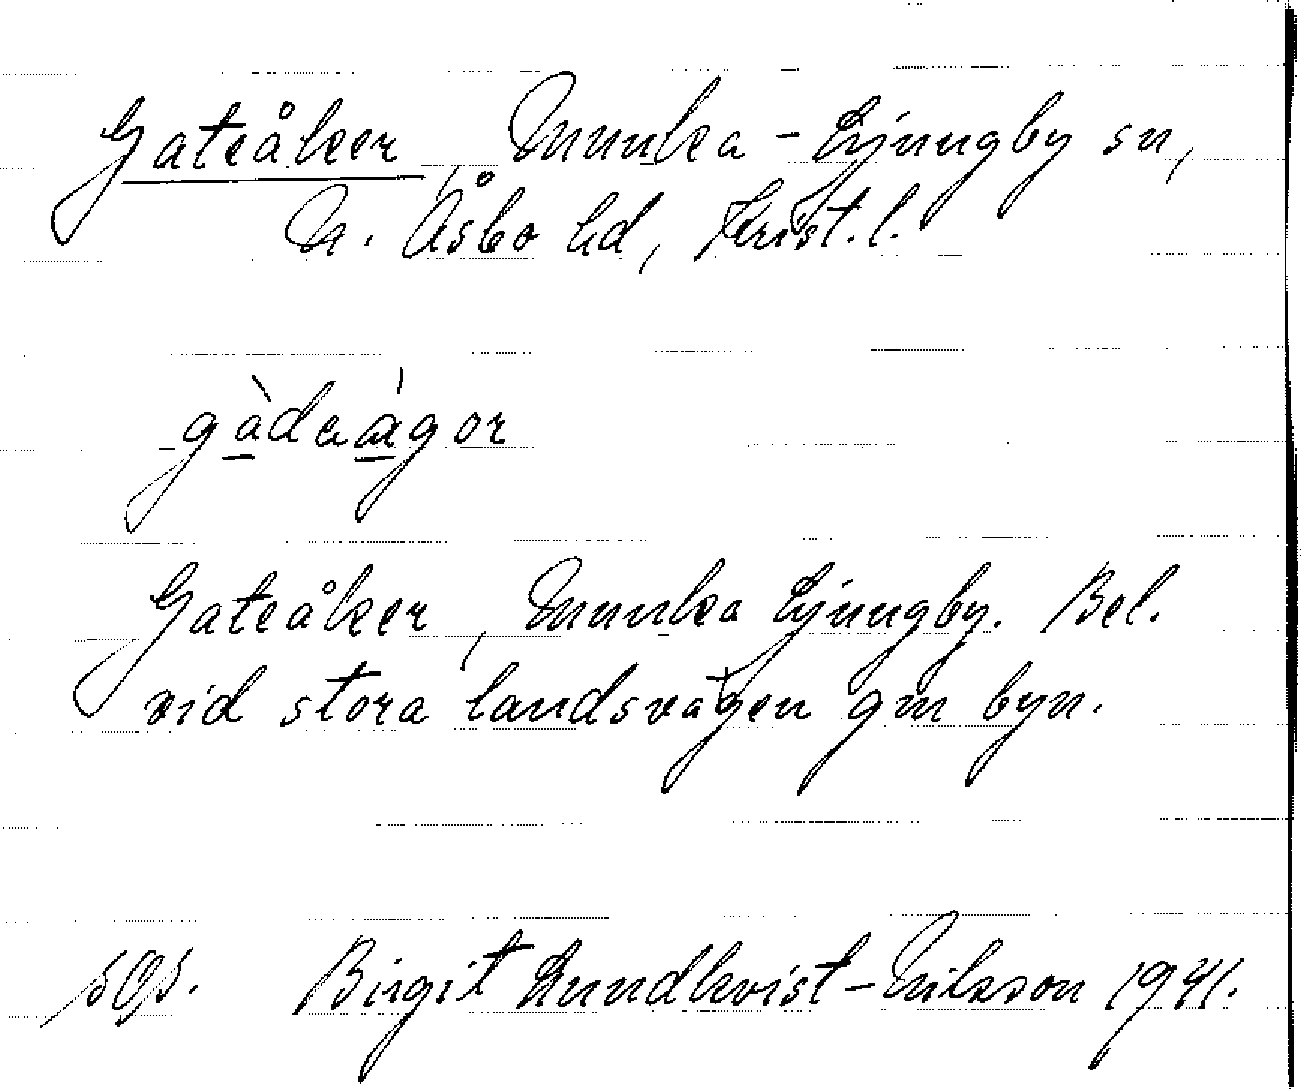 Gateåker, Munka-Ljungby sn,
N. Åsbo hd, Krist. l.
gàdaágor
Gateåker, Munka Ljungby. Bel.
vid stora landsvägen gm byn.
Birgit Lundkvist-Nilsson 1941.